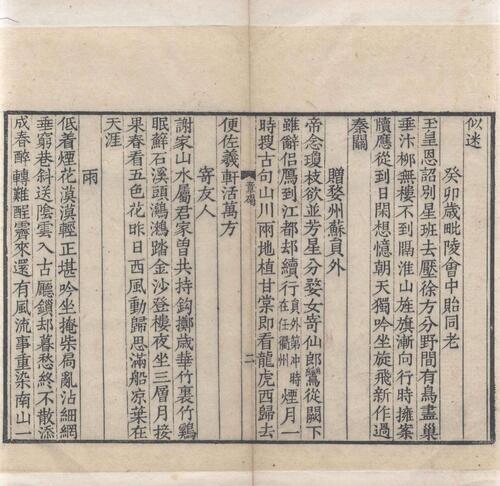 似迷
癸卯歲毗陵會中貽同老
玉皇恩詔別星班去壓徐方分野間有鳥盡巢
垂汴柳無樓不到隔淮山旌旗漸向行時擁案
牘應從到日閑想憶朝天獨吟坐旋飛新作過
秦關
贈婺州蘇員外
帝念瓊枝欲並芳星分婺女寄仙郎鸞從闕下
雖辭侶鴈到江都却續行員外第冲時在任衢州煙月一
時搜古句山川兩地植甘棠即看龍虎西歸去
便佐羲軒活萬方
章碣
二
寄友人
謝家山水屬君家曾共持鈎擲歲華竹裏竹鷄
眠蘚石溪頭鸂鶒踏金沙登樓夜坐三層月接
果春看五色花昨日西風動歸思滿船凉葉在
天涯
雨
低着煙花漠漠輕正堪吟坐掩柴扃亂沾細網
垂窮巷斜送陰雲入古廳鎖却暮愁終不散添
成春醉轉難醒霽來還有風流事重染南山一